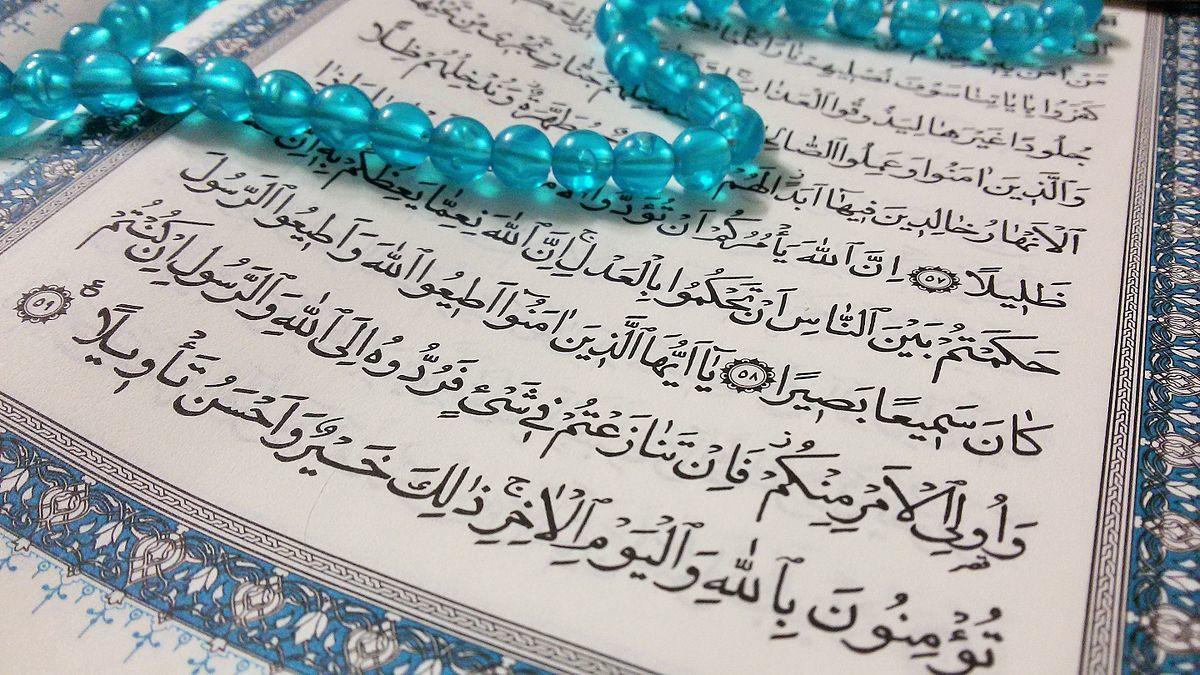 مَنْ اٰمَنَ
كَفَرُوا بِاٰيَاتِنَا سَوْفَ نُصْلِيهِمْ نَارًا
جُلُودًا غَيْرَهَا لِيَذُوقُوا الْعَذَابَ
وَالَّذِينَ اٰمَنُوا وَعَمِلُوا جَنَّاتٍ تَجْرِى مِنْ تَحْتِهَا
الْاَنْهَارُ خَالِدِينَ فِيهَا اَبَدًا لَهُمْ مُطَهَّرَةٌ وَنُدْخِلُهُمْ ظِلًّا
ظَلِيلًا ٥٧ اِنَّ اللّٰهَ يَأْمُرُكُمْ اَنْ تُؤَدُّوا
حَكَمْتُمْ بَيْنَ النَّاسِ اَنْ تَحْكُمُوا بِالْعَدْلِ اِنَّ اللّٰهَ نِعِمَّا يَعِظُكُمْ بِهِ اِنَّ
كَانَ سَمِيعًا بَصِيرًا ٥٨ يَٓا اَيُّهَا الَّذِينَ اٰمَنُٓوا اَطِيعُوا اللّٰهَ وَاَطِيعُوا الرَّسُولَ
وَاُولِى الْاَمْرِ مِنْكُمْ فَاِنْ تَنَازَعْتُمْ فِى شَىْءٍ فَرُدُّوهُ اِلَى اللّٰهِ وَالرَّسُولِ اِنْ كُنْتُمْ
تُؤْمِنُونَ بِاللّٰهِ وَالْيَوْمِ الْاٰخِرِ ذٰلِكَ خَيْرٌ وَاَحْسَنُ تَأْوِيلًا ٥٩